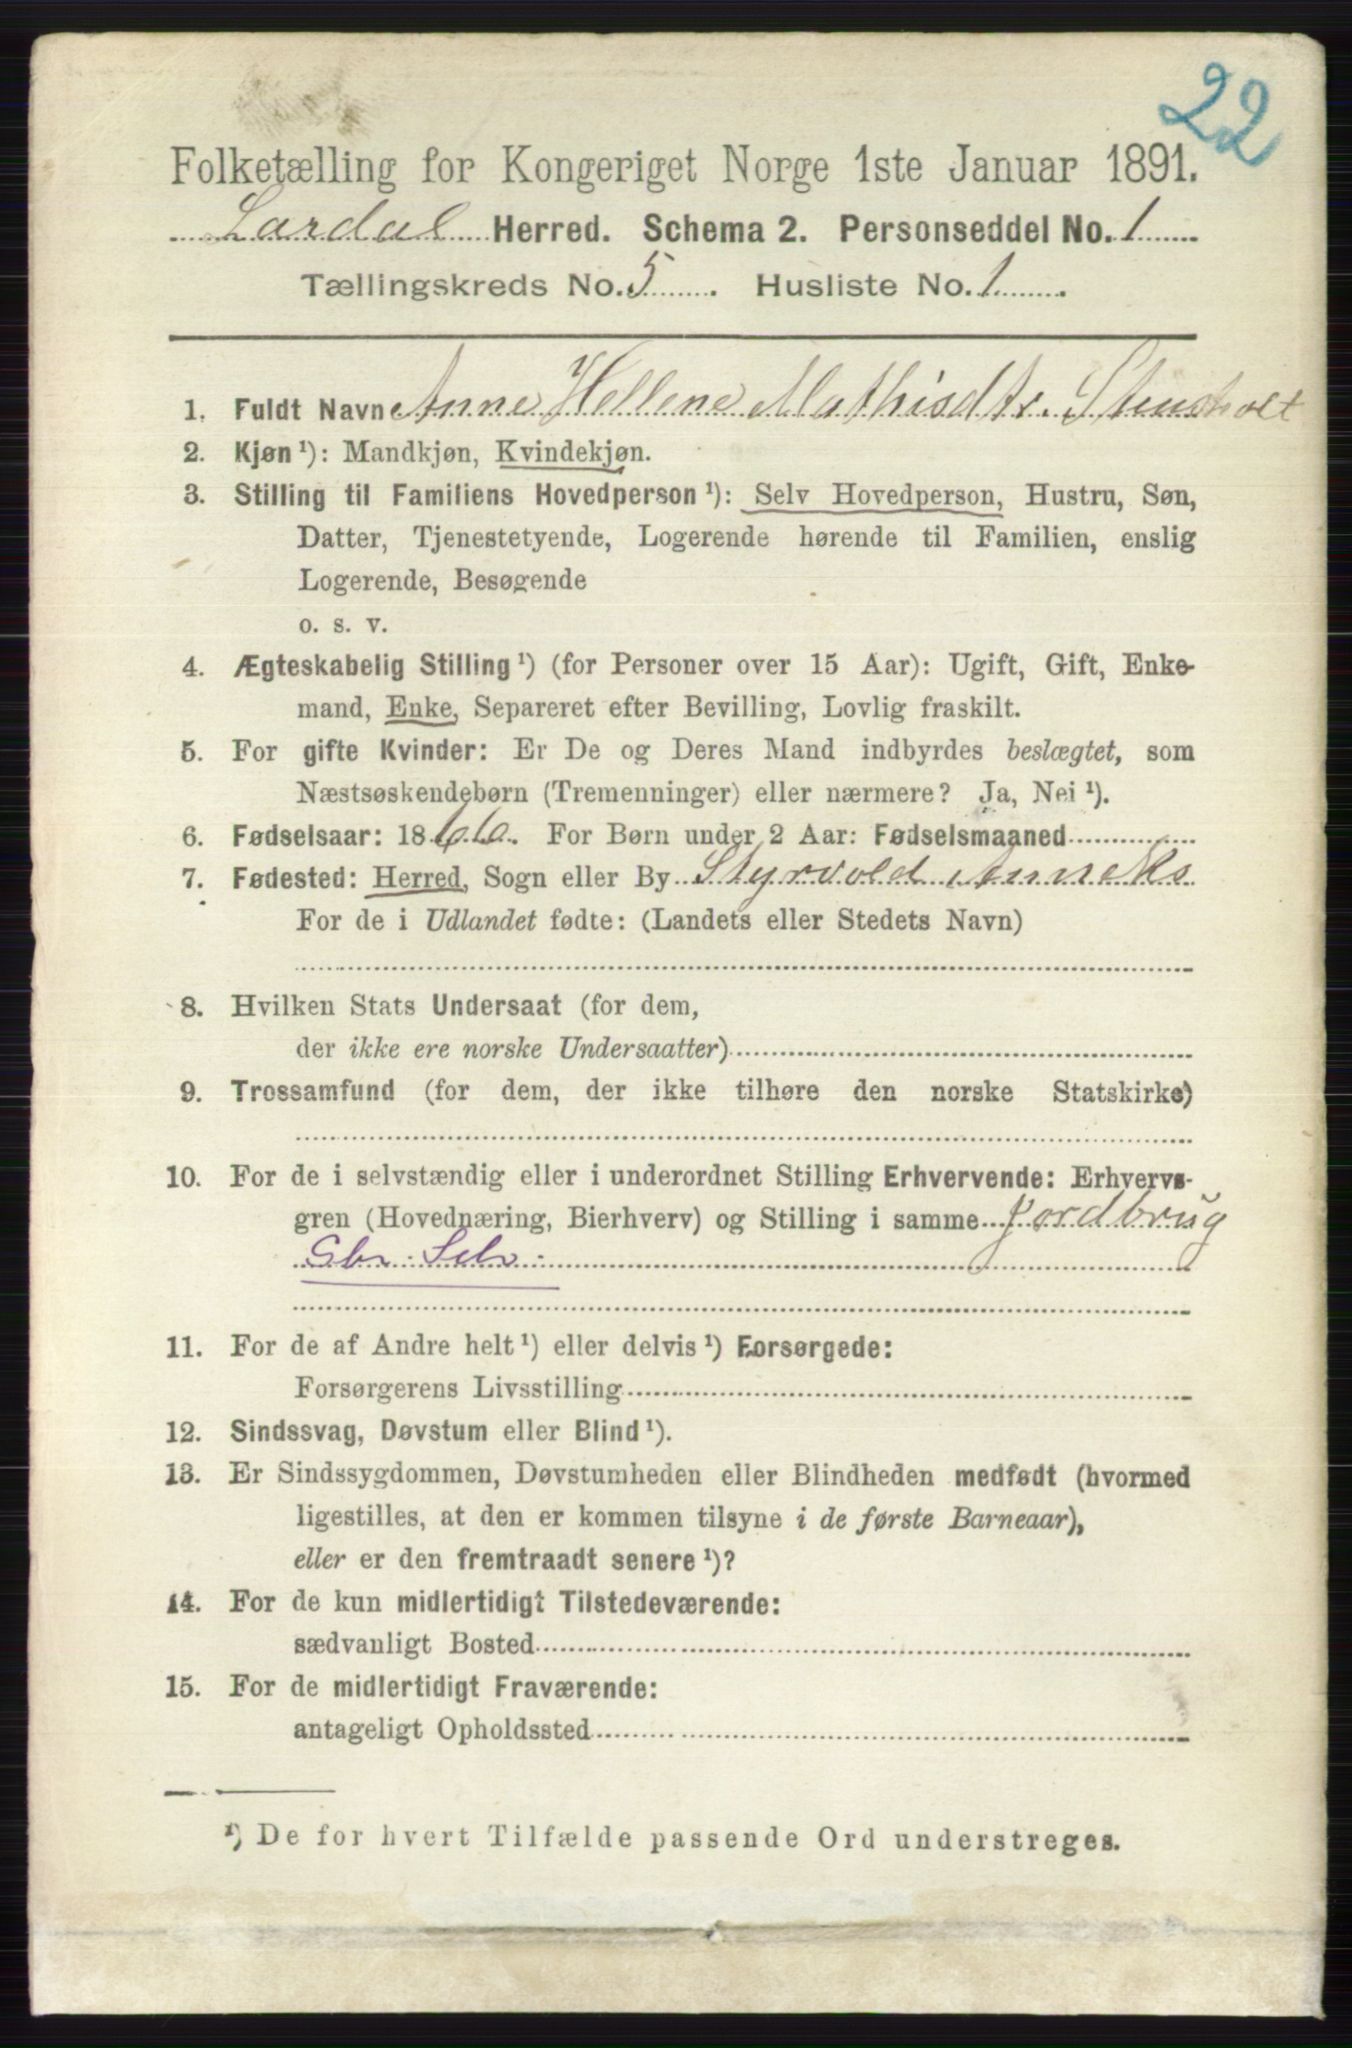 22
Folketælling for Kongeriget Norge 1ste Januar 1891.
Lardal Herred. Schema 2. Personseddel No. 1
Tællingskreds No. 5. Husliste No. 1.
1. Fuldt Navn Anne Hellene Mathisdtr. Stensholt
2. Kjøn ¹): Mandkjøn, Kvindekjøn.
3. Stilling til Familiens Hovedperson ¹): Selv Hovedperson, Hustru, Søn,
Datter, Tjenestetyende, Logerende hørende til Familien, enslig
Logerende, Besøgende
o. s. v.
4. Ægteskabelig Stilling ¹) (for Personer over 15 Aar): Ugift, Gift, Enke-
mand, Enke, Separeret efter Bevilling, Lovlig fraskilt.
5. For gifte Kvinder: Er De og Deres Mand indbyrdes beslægtet, som
Næstsøskendebørn (Tremenninger) eller nærmere? Ja, Nei ¹).
6. Fødselsaar: 1866. For Børn under 2 Aar: Fødselsmaaned
7. Fødested: Herred, Sogn eller By Styrvold Anneks
For de i Udlandet fødte: (Landets eller Stedets Navn)
8. Hvilken Stats Undersaat (for dem,
der ikke ere norske Undersaatter)
9. Trossamfund (for dem, der ikke tilhøre den norske Statskirke)
10. For de i selvstændig eller i underordnet Stilling Erhvervende: Erhvervs-
gren (Hovednæring, Bierhverv) og Stilling i samme Jordbrug
Gbr. Selv.
11. For de af Andre helt ¹) eller delvis ¹) Forsørgede:
Forsørgerens Livsstilling
12. Sindssvag, Døvstum eller Blind ¹).
13. Er Sindssygdommen, Døvstumheden eller Blindheden medfødt (hvormed
ligestilles, at den er kommen tilsyne i de første Barneaar),
eller er den fremtraadt senere ¹)?
14. For de kun midlertidigt Tilstedeværende:
sædvanligt Bosted
15. For de midlertidigt Fraværende:
antageligt Opholdssted
¹) De for hvert Tilfælde passende Ord understreges.